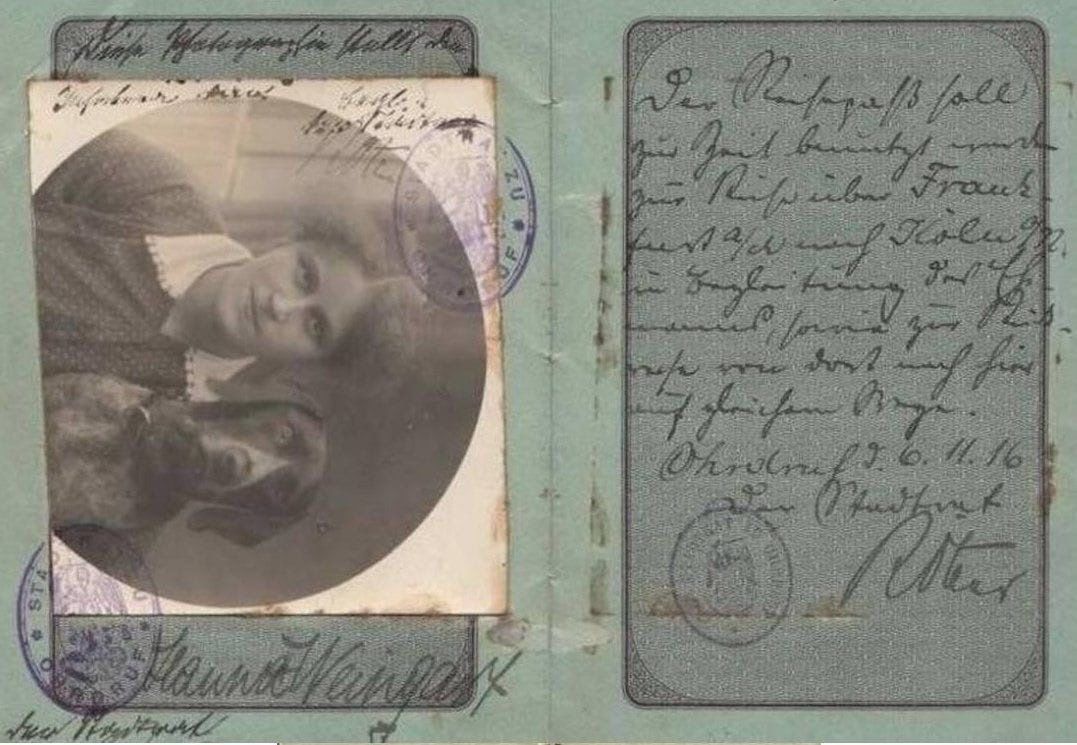 Diese Photographie stellt den
Inhaber dar
Hanna Weingart
der Stadtrat
Der Reisepaß soll
zur Zeit benutzt werden
zur Reise über Frank-
furt a/M nach Köln
in Begleitung des Ehe-
manns, sowie zur Rück-
reise von dort nach hier
auf gleichem Wege.
Ohrdruf d. 6. 11. 16
Der Stadtrat